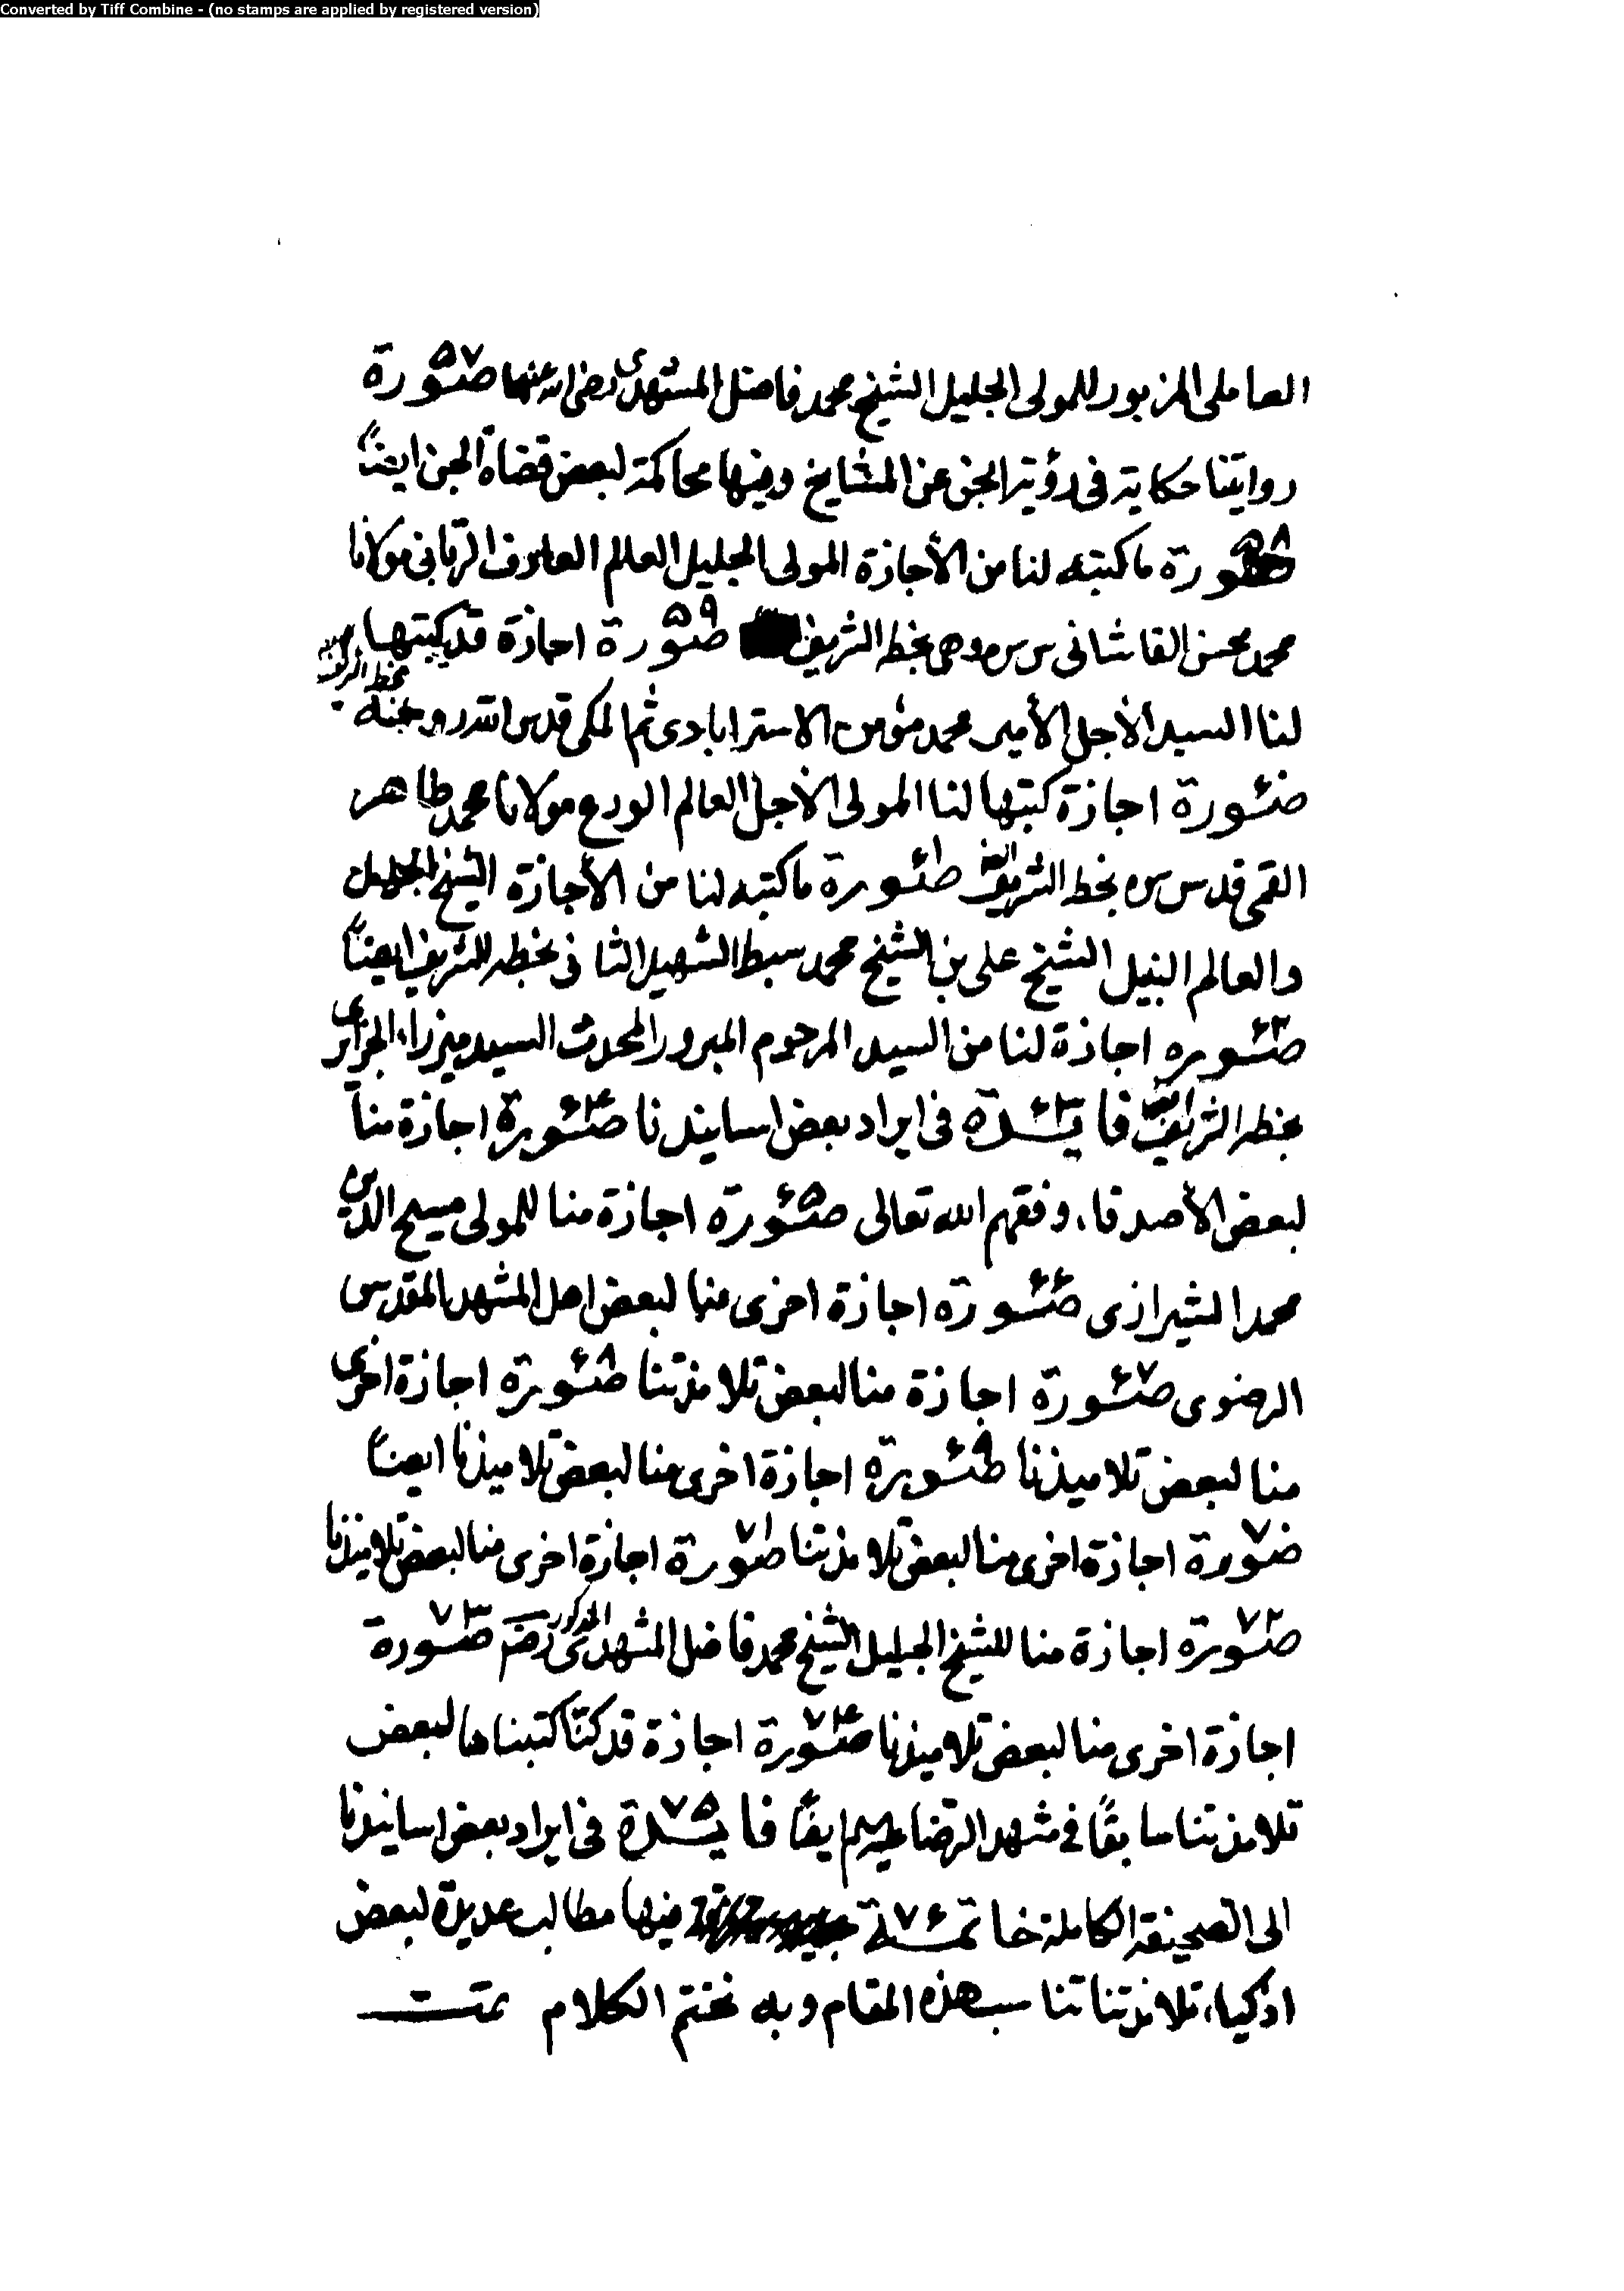 Converted by Tiff Combine - (no stamps are applied by registered version)
العاملى المزبور للمولى الجليل الشيخ محمد فاضل المشهدى رضى الله عنهما صورة ۵۷
روايتنا حكاية فى رؤية الجن عن المشايخ وفيها محاكمة لبعض قضاة الجن ايضاً
صورة ۵۸ ما كتبه لنا من الأجازة المولى الجليل العالم العارف الربانى مولانا
محمد محسن القاشانى س سره وهى بخطه الشريف صورة ۵۹ اجازة قد كتبها
بخطه الشريف
لنا السيد الأجل الأمير محمد مؤمن الاسترابادى ثم المكى قدس الله روحه
صورة اجازة كتبها لنا المولى الأجل العالم الورع مولانا محمد طاهر
القمى قدس سره بخطه الشريف ايضا صورة ما كتبه لنا من الأجازة الشيخ الجليل
والعالم النبيل الشيخ على بن الشيخ محمد سبط الشهيد الثانى بخطه الشريف ايضاً
صوره ۶۲ اجازة لنا من السيد المرحوم المبرور المحدث السيد ميرزاء الجزائرى
بخطه الشريف ايضا فايدة ۶۳ فى ايراد بعض اسانيدنا صورة ۶۴ اجازة مناً
لبعض الأصدقاء وفقهم الله تعالى صورة ۶۵ اجازة منا للمولى مسيح الدين
محمد الشيرازى صورة ۶۶ اجازة اخرى منا لبعض اهل المشهد المقدس
الرضوى صورة ۶۷ اجازة منا لبعض تلامذتنا صورة ۶۸ اجازة اخرى
منا لبعض تلاميذنا صورة ۶۹ اجازة اخرى منا لبعض تلاميذنا ايضاً
صورة ۷۰ اجازة اخرى منا لبعض تلامذتنا صورة ۷۱ اجازة اخرى منا لبعض تلاميذنا
صورة ۷۲ اجازة منا للشيخ الجليل الشيخ محمد فاضل المشهدى المذكور رضه صورة ۷۳
اجازة اخرى منا لبعض تلاميذنا صورة ۷۴ اجازة قد كنّا كتبناها لبعض
تلامذتنا سابقاً فى مشهد الرضا عليه السلام ايضاً فايدة ۷۵ فى ايراد بعض اسانيدنا
الى الصحيفة الكاملة خاتمة ۷۶ فيها مطالب عديدة لبعض
اذكياء تلامذتنا تناسب هذه المقام وبه نختم الكلام تمت